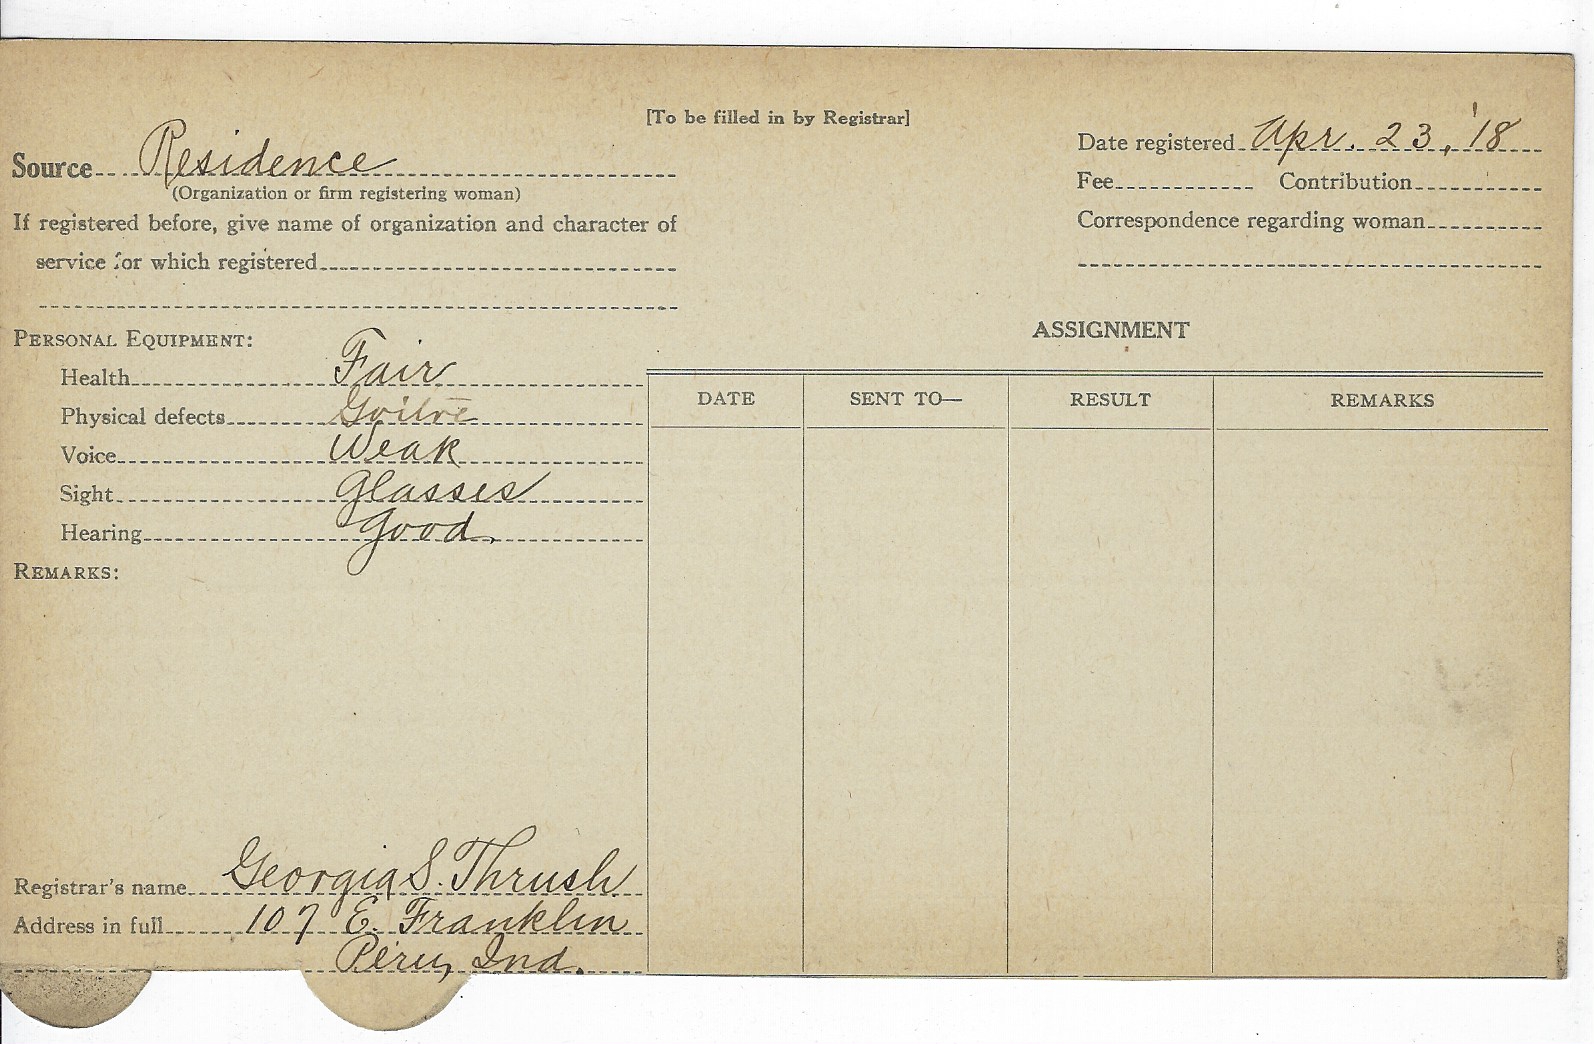 [To be filled in by Registrar]
Source Residence
(Organization or firm registering woman)
If registered before, give name of organization and character of
service for which registered
Date registered Apr. 23, '18
Fee Contribution
Correspondence regarding woman
PERSONAL EQUIPMENT:
Health Fair
Physical defects Goitre
Voice Weak
Sight Glasses
Hearing Good.
REMARKS:
Registrar's name Georgia S. Thrush
Address in full 107 E. Franklin
Peru, Ind.
ASSIGNMENT
DATE SENT TO— RESULT REMARKS